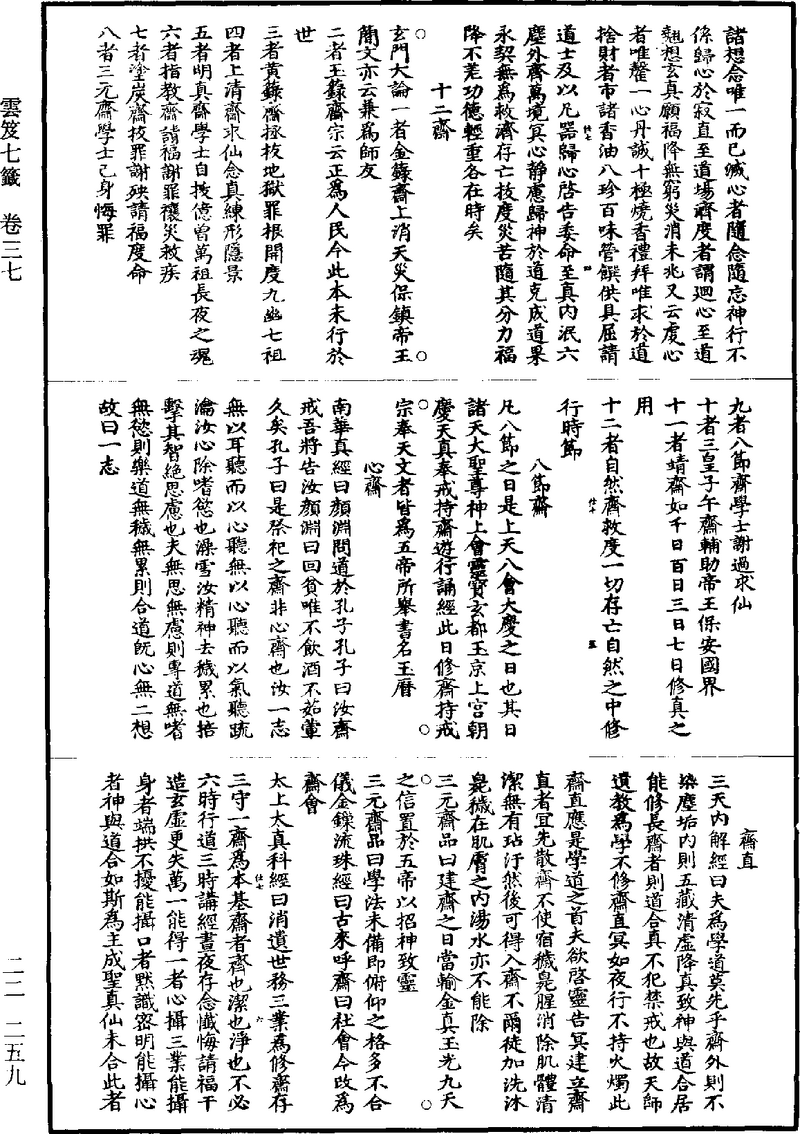 諸想念唯一而已滅心者隨念隨忘神行不
係歸心於寂直至道場齋度者謂迴心至道
翹想玄真願福降無窮災消未兆又云虔心
者唯罄一心丹誠十極燒香禮拜唯求於道
捨財者市諸香油八珍百味營饌供具屈請
道士及以凡器歸心啓告委命至真內泯六
塵外齋萬境冥心靜慮歸神於道克成道果
永契無為救濟存亡拔度災苦隨其分力福
降不差功德輕重各在時矣
十二齋
玄門大論一者金籙齋上消天災保鎮帝王
簡文亦云兼為師友
二者玉籙齋宗云正為人民今此本未行於
世
三者黃籙齋拯拔地獄罪根開度九幽七祖
四者上清齋求仙念真練形隱景
五者明真齋學士自拔億曾萬祖長夜之魂
六者指教齋請福謝罪禳災救疾
七者塗炭齋拔罪謝殃請福度命
八者三元齋學士己身悔罪
九者八節齋學士謝過求仙
十者三皇子午齋輔助帝王保安國界
十一者靖齋如千日百日三日七日修真之
用
十二者自然齋救度一切存亡自然之中修
行時節
八節齋
凡八節之日是上天八會大慶之日也其日
諸天大聖尊神上會靈寶玄都玉京上宮朝
慶天真奉戒持齋遊行誦經此日修齋持戒
宗奉天文者皆為五帝所舉書名玉曆
心齋
南華真經曰顏淵問道於孔子孔子曰汝齋
戒吾將告汝顏淵曰回貧唯不飲酒不茹葷
久矣孔子曰是祭祀之齋非心齋也汝一志
無以耳聽而以心聽無以心聽而以氣聽疏
瀹汝心除嗜慾也澡雪汝精神去穢累也掊
擊其智絕思慮也夫無思無慮則專道無嗜
無慾則樂道無穢無累則合道既心無二想
故曰一志
齋直
三天內解經曰夫為學道莫先乎齋外則不
染塵垢內則五藏清虛降真致神與道合居
能修長齋者則道合真不犯禁戒也故天師
遺教為學不修齋直冥如夜行不持火燭此
齋直應是學道之首夫欲啓靈告冥建立齋
直者宜先散齋不使宿穢臭腥消除肌體清
潔無有玷汙然後可得入齋不爾徒加洗沐
臭穢在肌膚之內湯水亦不能除
三元齋品曰建齋之日當輸金真玉光九天
之信置於五帝以招神致靈
三元齋品曰學法未備即俯仰之格多不合
儀金鏁流珠經曰古來呼齋曰社會今改為
齋會
太上太真科經曰消遺世務三業為修齋存
三守一齋為本基齋者齊也潔也淨也不必
六時行道三時講經晝夜存念懺悔請福干
造玄虛更失萬一能得一者心攝三業能攝
身者端拱不擾能攝口者默識密明能攝心
者神與道合如斯為主成聖真仙未合此者
雲笈七籤 卷三七
二二 二五九